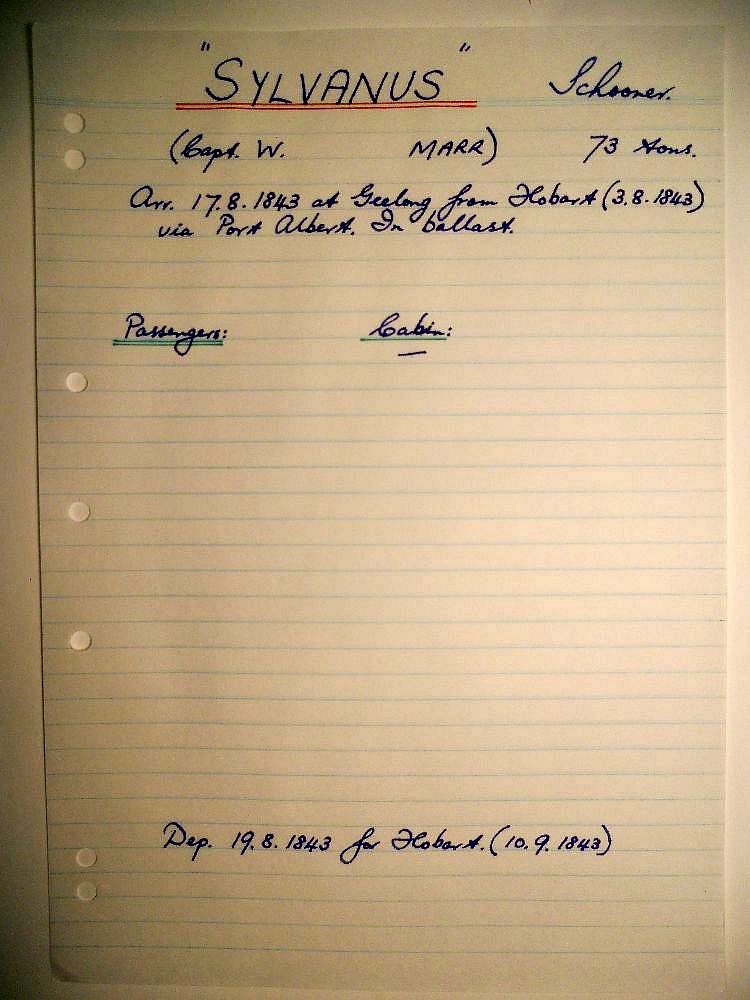 "SYLVANUS" Schooner.
(Capt. W. MARR) 73 tons.
Arr. 17.8.1843 at Geelong from Hobart (3.8.1843)
via Port Albert. In ballast.
Passengers: Cabin:
—
Dep. 19.8.1843 for Hobart. (10.9.1843)